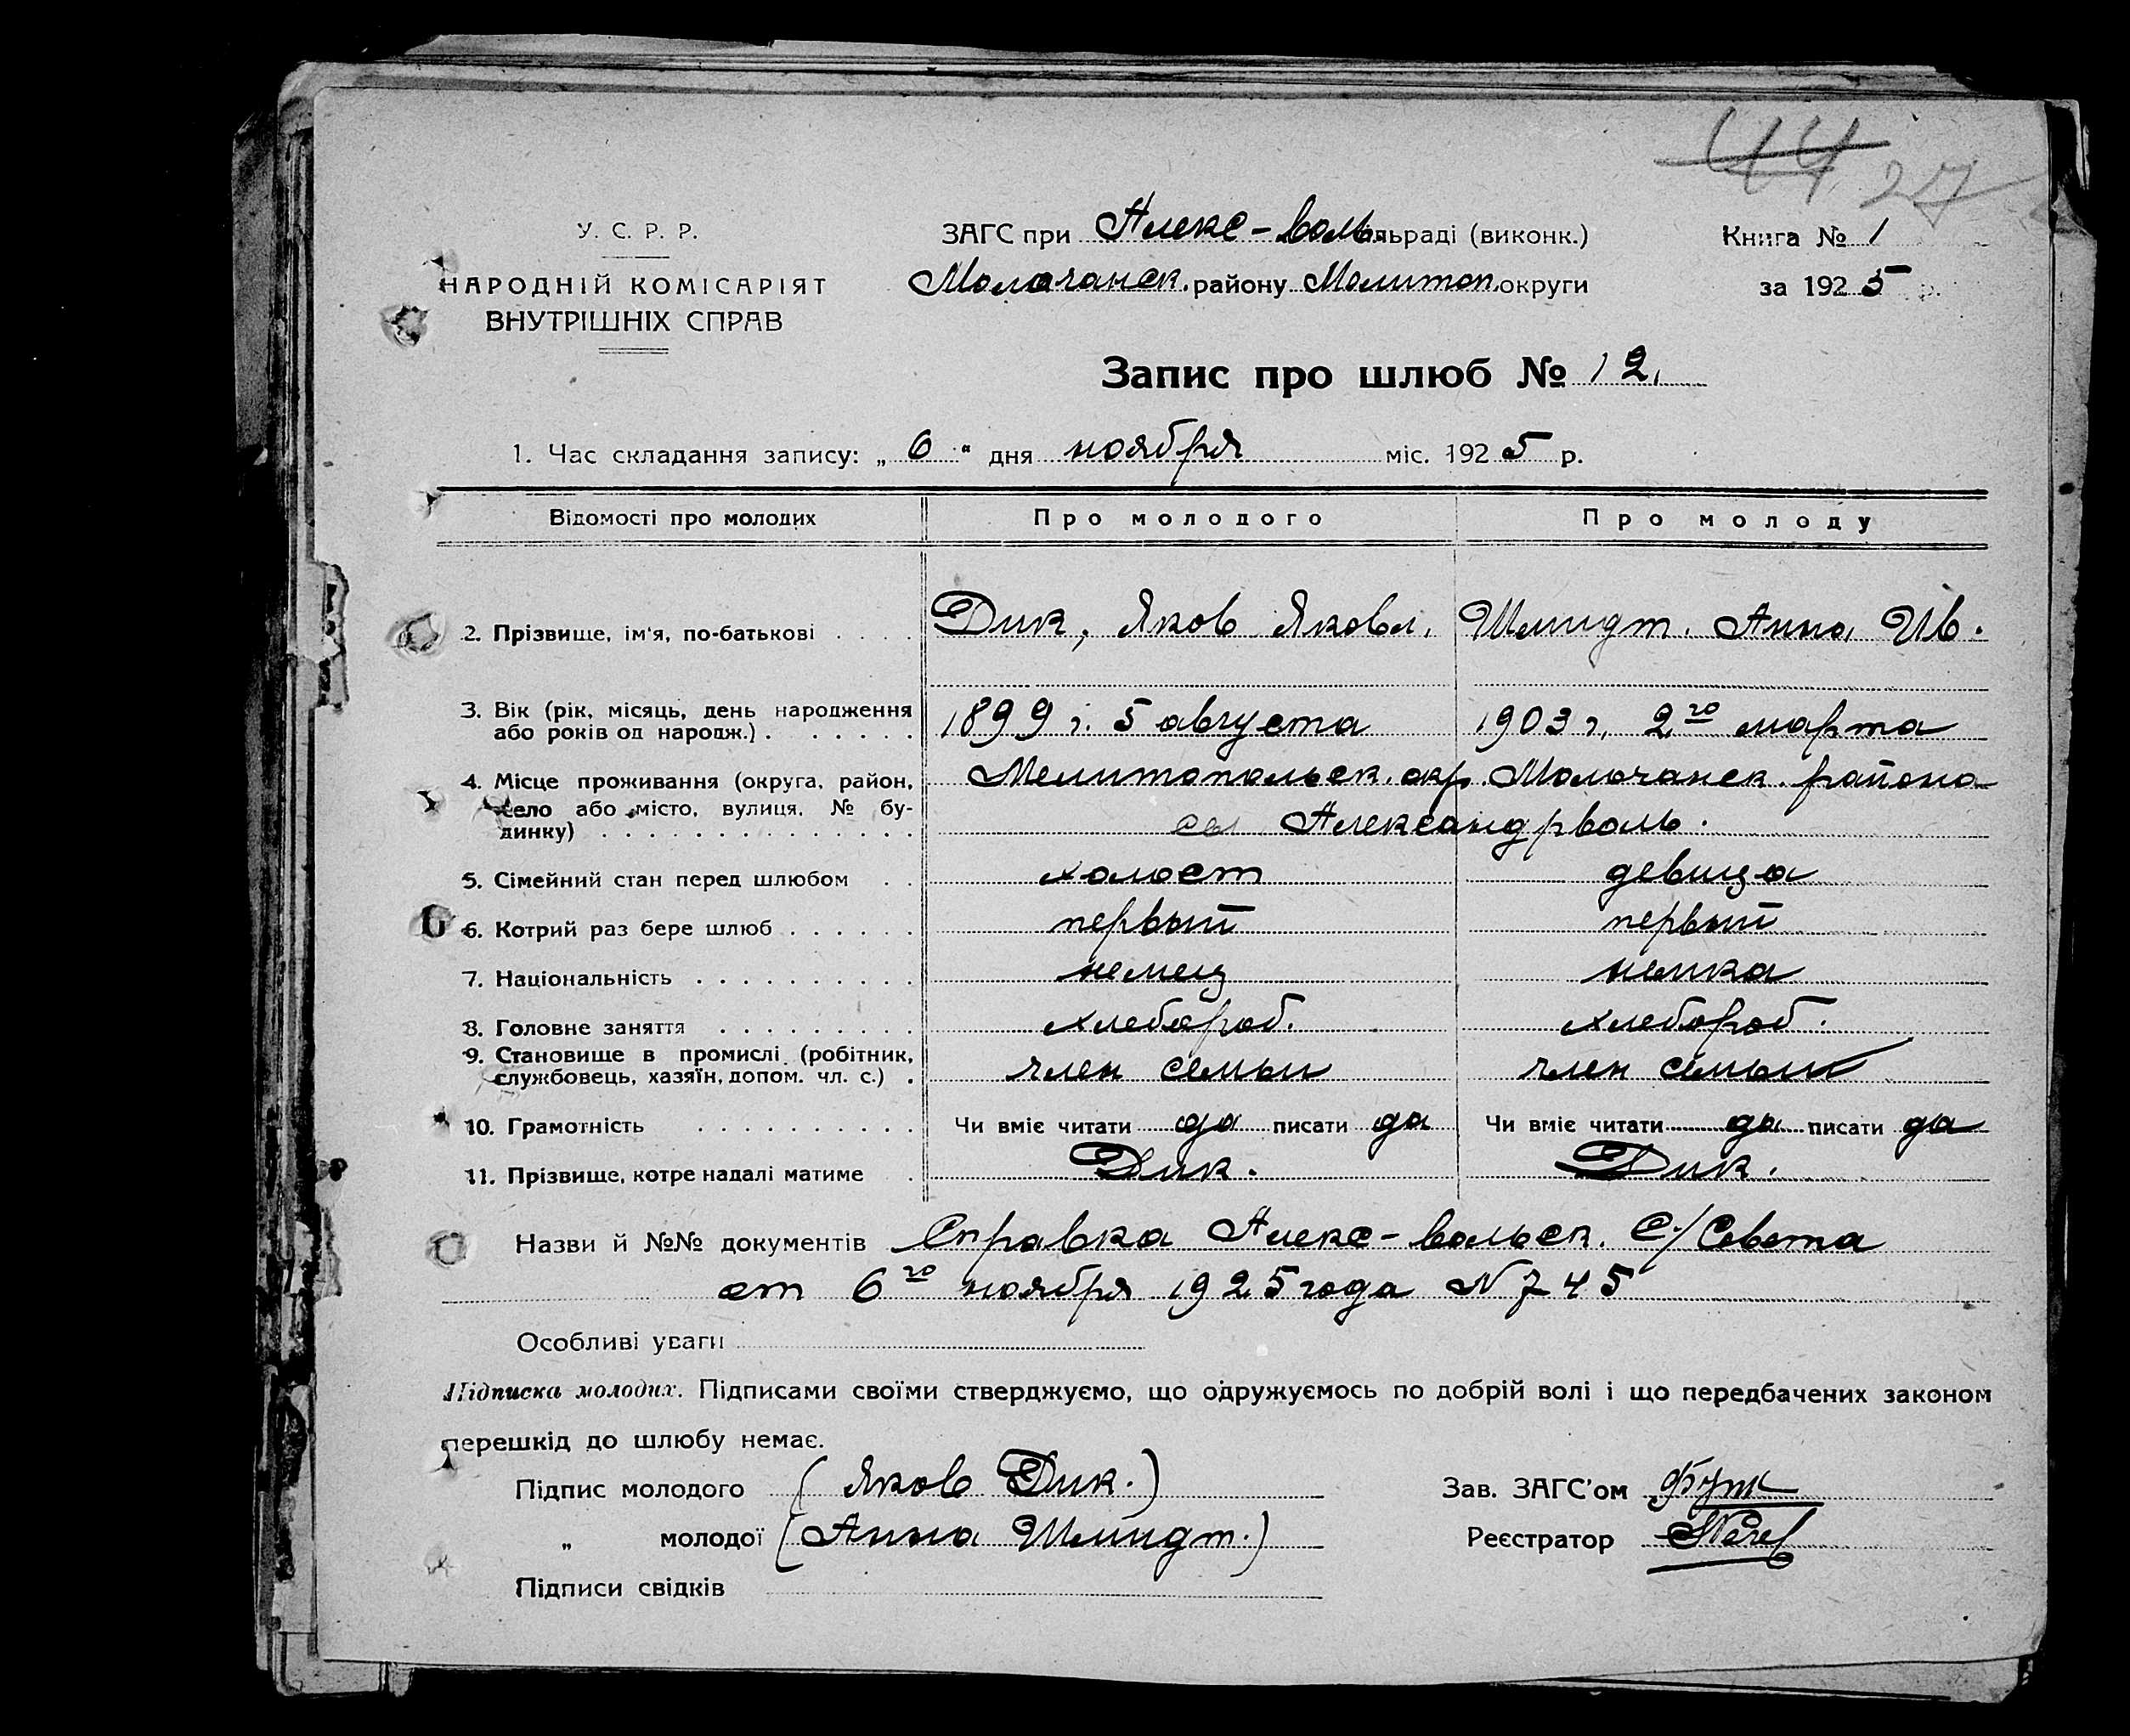 44 27
У. С. Р. Р.
НАРОДНІЙ КОМІСАРІЯТ
ВНУТРІШНІХ СПРАВ
ЗАГС при Алекс-воль льраді (виконк.)
Молочанск. району Мелитоп. округи
Книга № 1
за 1925 р.
Запис про шлюб № 12.
1. Час складання запису: „ 6 “ дня ноября міс. 1925 р.
Відомості про молодих Про молодого Про молоду
2. Прізвище, ім'я, по-батькові . . . . Дик, Яков Яковл. Шмидт. Анна Ив.
3. Вік (рік, місяць, день народження 1899 г. 5 августа 1903 г. 2го марта
або років од народж.) . . . . . .
4. Місце проживання (округа, район, Мелитопольск. окр. Молочанск. района
село або місто, вулиця, № бу- Александрволь.
динку) . . . . . . . . . . . . . .
5. Сімейний стан перед шлюбом . . холост девица
6. Котрий раз бере шлюб . . . . . . первый первый
7. Національність . . . . . . . . . . немец немка
8. Головне заняття . . . . . . . . . хлебороб. хлебороб.
9. Становище в промислі (робітник,
службовець, хазяїн, допом. чл. с.) . член семьи член семьи
10. Грамотність . . . . . . . . . . Чи вміє читати да писати да Чи вміє читати да писати да
11. Прізвище, котре надалі матиме . Дик. Дик.
Назви й №№ документів Справка Алекс-вольск. С/Совета
от 6го ноября 1925 года N 745
Особливі уваги
Підписка молодих. Підписами своїми стверджуємо, що одружуємось по добрій волі і що передбачених законом
перешкід до шлюбу немає.
Підпис молодого (Яков Дик.) Зав. ЗАГС'ом
„ молодої (Анна Шмидт.) Реєстратор
Підписи свідків